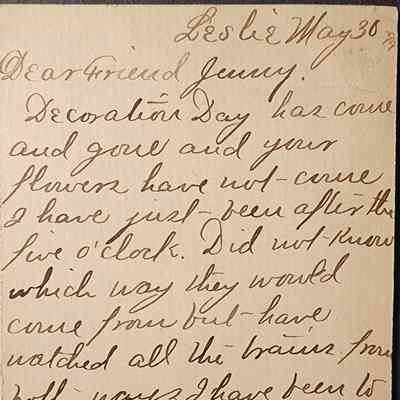 Leslie May 30
Dear Friend Jenny.
Decoration Day has come
and gone and your
flowers have not come
I have just been after the
five o'clock. Did not know
which way they would
come from but have
watched all the trains from
both ways I have been to